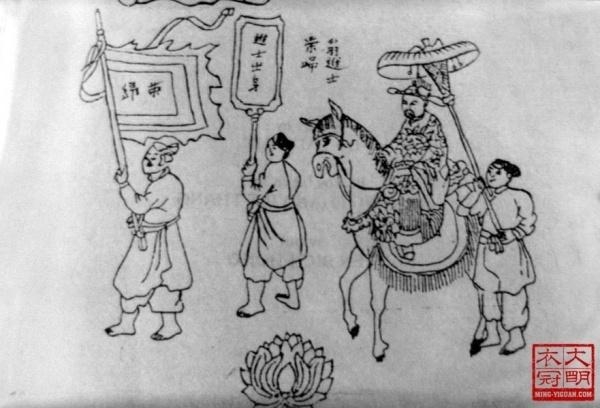 榮歸
進士出身
翁進士
榮歸
大明
衣冠
MING-YIGUAN.COM